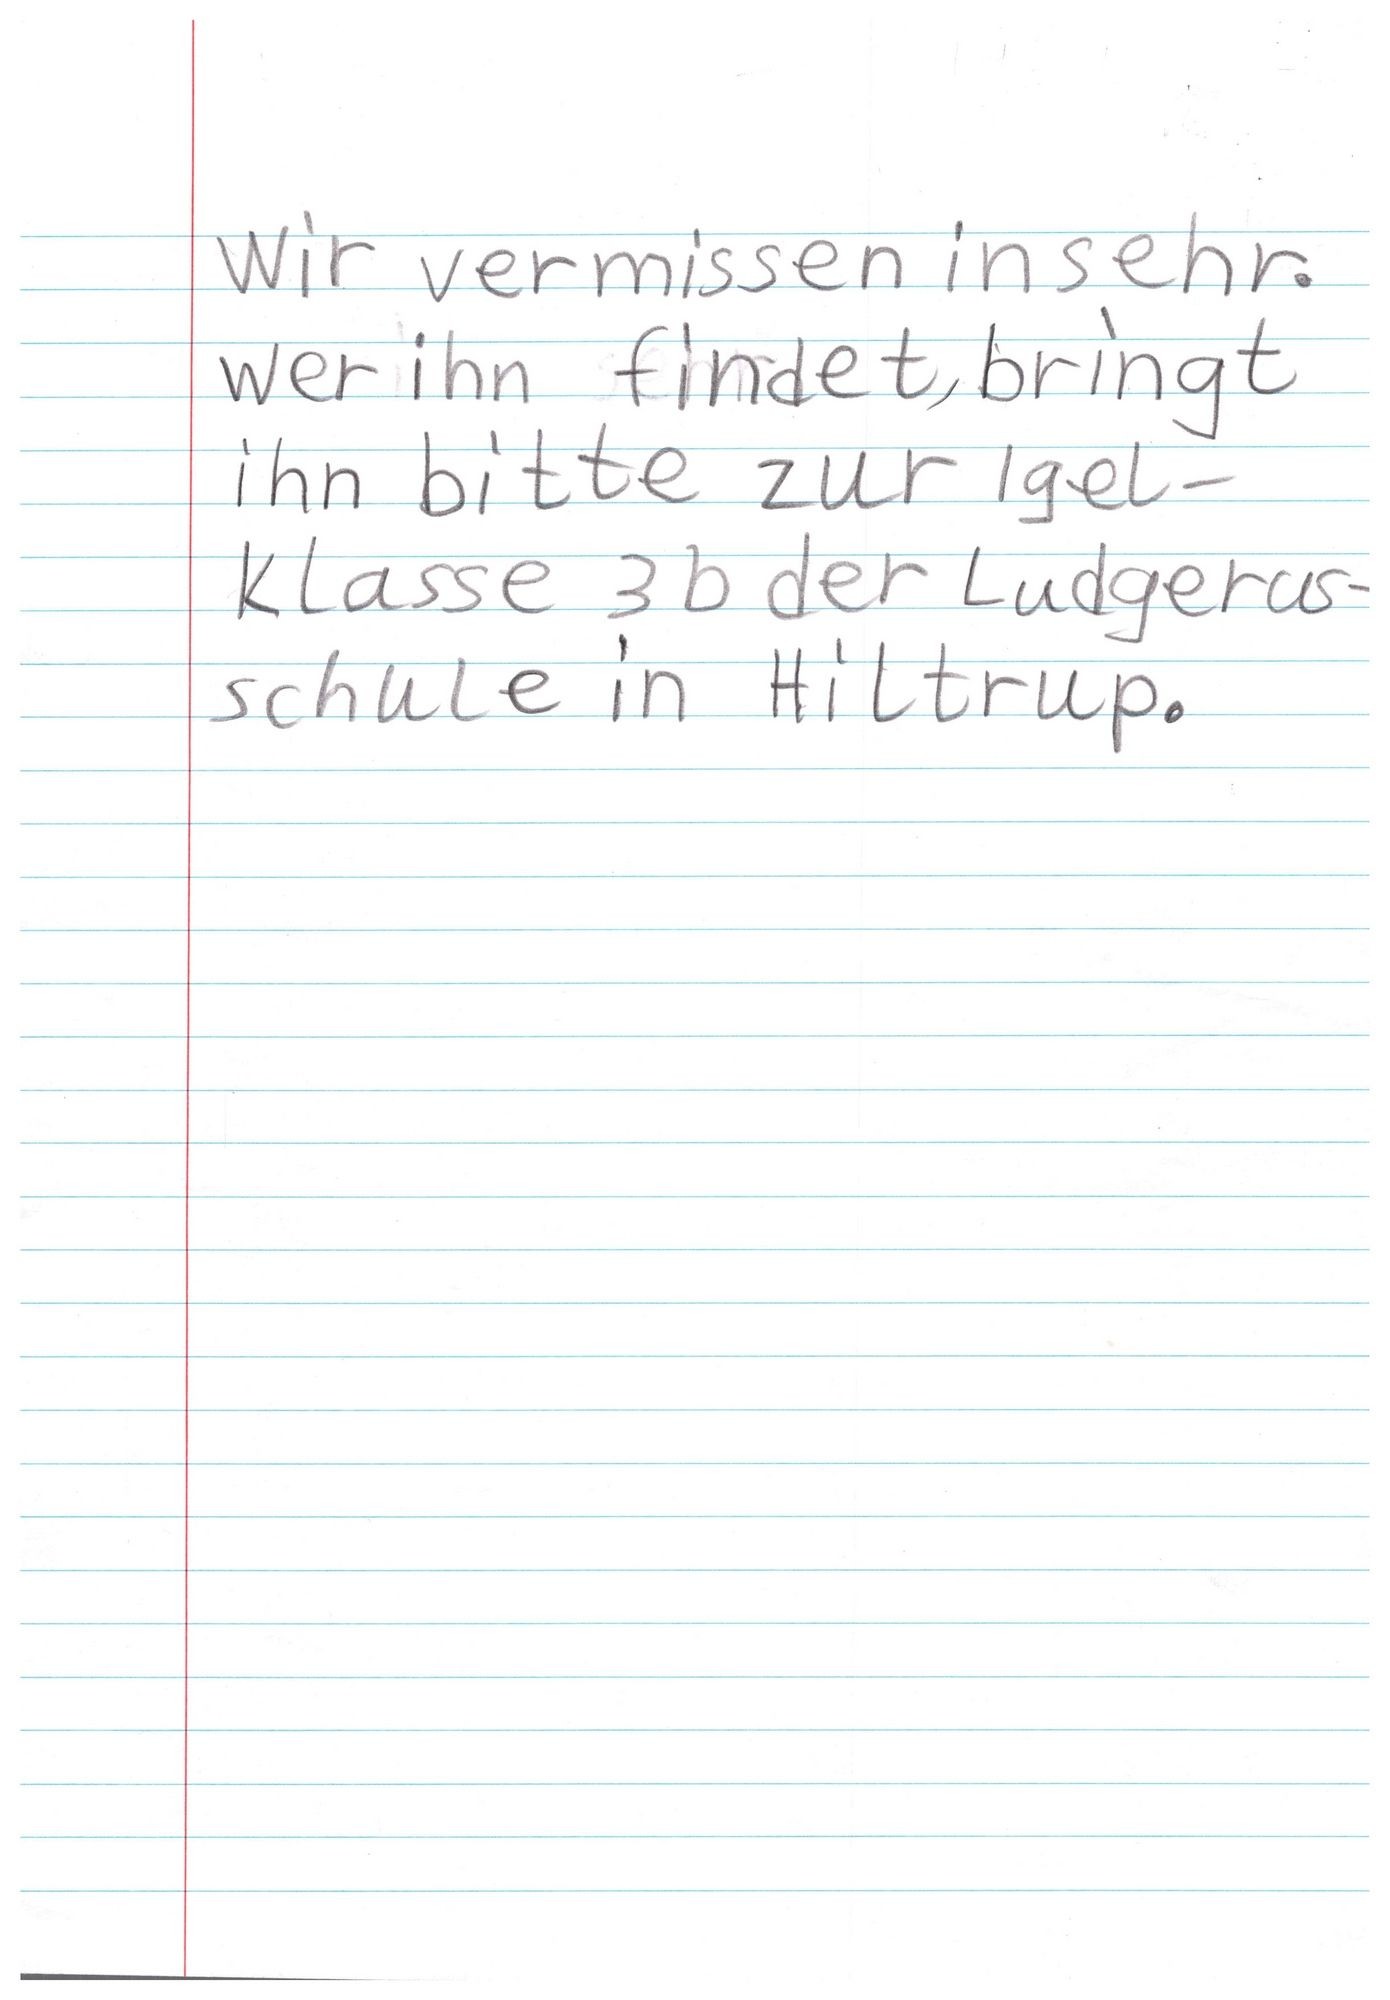 Wir vermissen in sehr.
wer ihn findet, bringt
ihn bitte zur Igel-
klasse 3b der Ludgerus-
schule in Hiltrup.